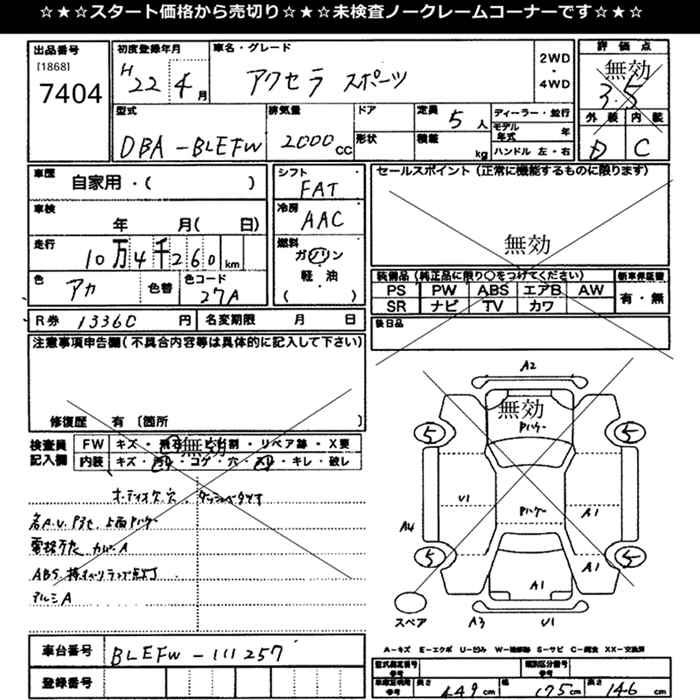 ☆★☆スタート価格から売切り☆★☆未検査ノークレームコーナーです☆★☆
出品番号
[1868]
7404
初度登録年月
H 22 4 月
車名・グレード
アクセラ スポーツ
2WD
・
4WD
評価点
無効
3.5
外装 内装
D C
型式
DBA-BLEFW
排気量
2000 cc
ドア
形状
定員 5 人
積載 kg
ディーラー・並行
モデル年式 年
ハンドル 左・右
車歴 自家用・( )
車検 年 月( 日)
走行 10万4千260 km
色 アカ 色替 色コード 27A
シフト
FAT
冷房
AAC
燃料
ガソリン
軽・油
( )
セールスポイント(正常に機能するものに限ります)
無効
装備品(純正品に限り○をつけてください) 新車保証書
PS PW ABS エアB AW 有・無
SR ナビ TV カワ
後日品
R券 13360 円 名変期限 月 日
注意事項申告欄(不具合内容等は具体的に記入して下さい)
修復歴 有 〔箇所 〕
検査員記入欄
FW キズ・飛石・ヒビ割・リペア跡・X要
無効
内装 キズ・汚れ・コゲ・穴・スレ・キレ・破レ
オーディオケ穴
ABS
アルミA
車台番号 BLEFW-111257
登録番号
A2
無効
Pハゲー
5 5
U1 Pハゲー A1
A4
A1
5 5
A1
スペア
A3 U1
A-キズ E-エクボ U-凹み W-補修跡 S-サビ C-腐食 XX-交換済
型式指定番号 参考
類別区分番号 参考
車庫証明用 参考 長さ 449 cm 幅 175 cm 高さ 146 cm